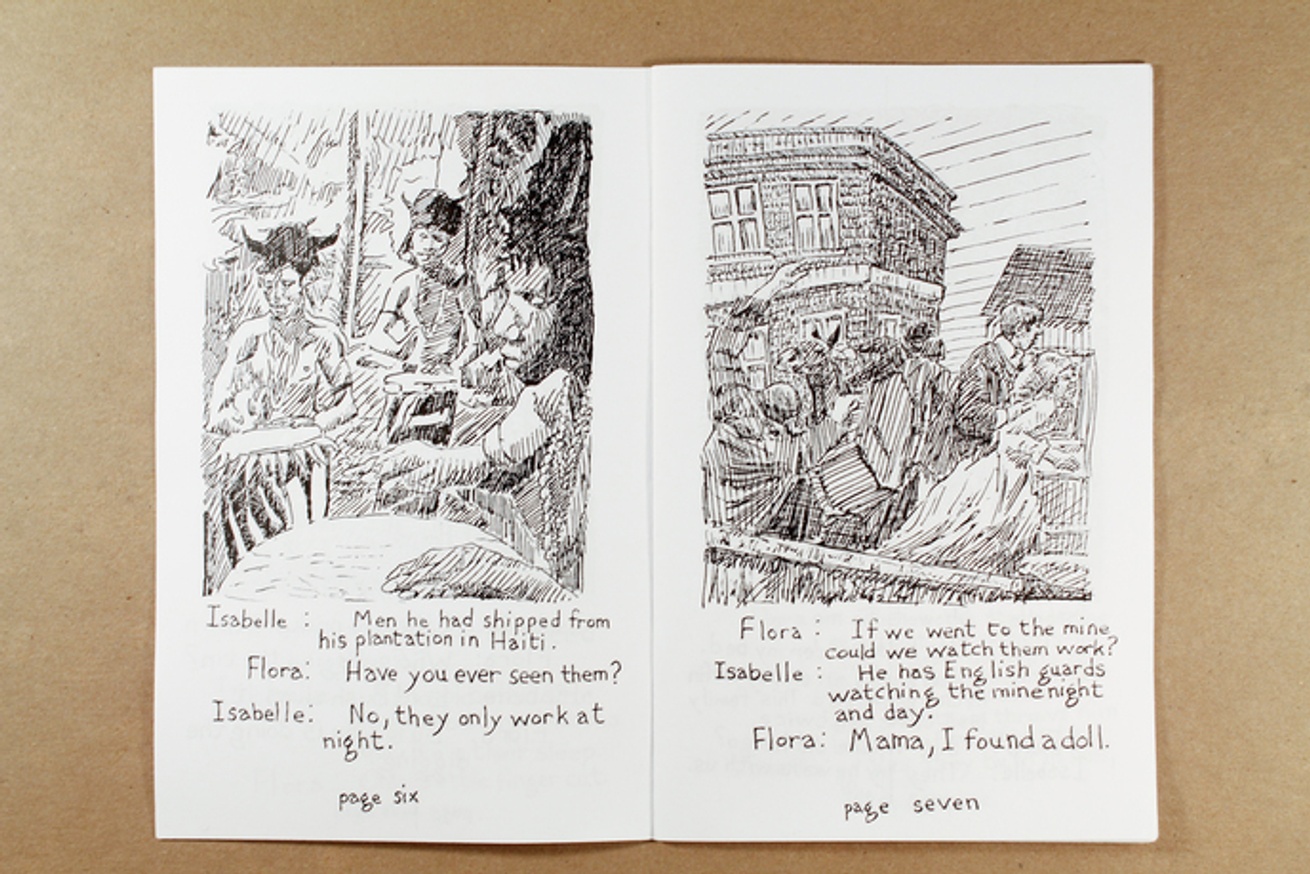 Isabelle : Men he had shipped from
his plantation in Haiti.
Flora: Have you ever seen them?
Isabelle: No, they only work at
night.
page six
Flora : If we went to the mine
could we watch them work?
Isabelle : He has English guards
watching the mine night
and day.
Flora: Mama, I found a doll.
page seven